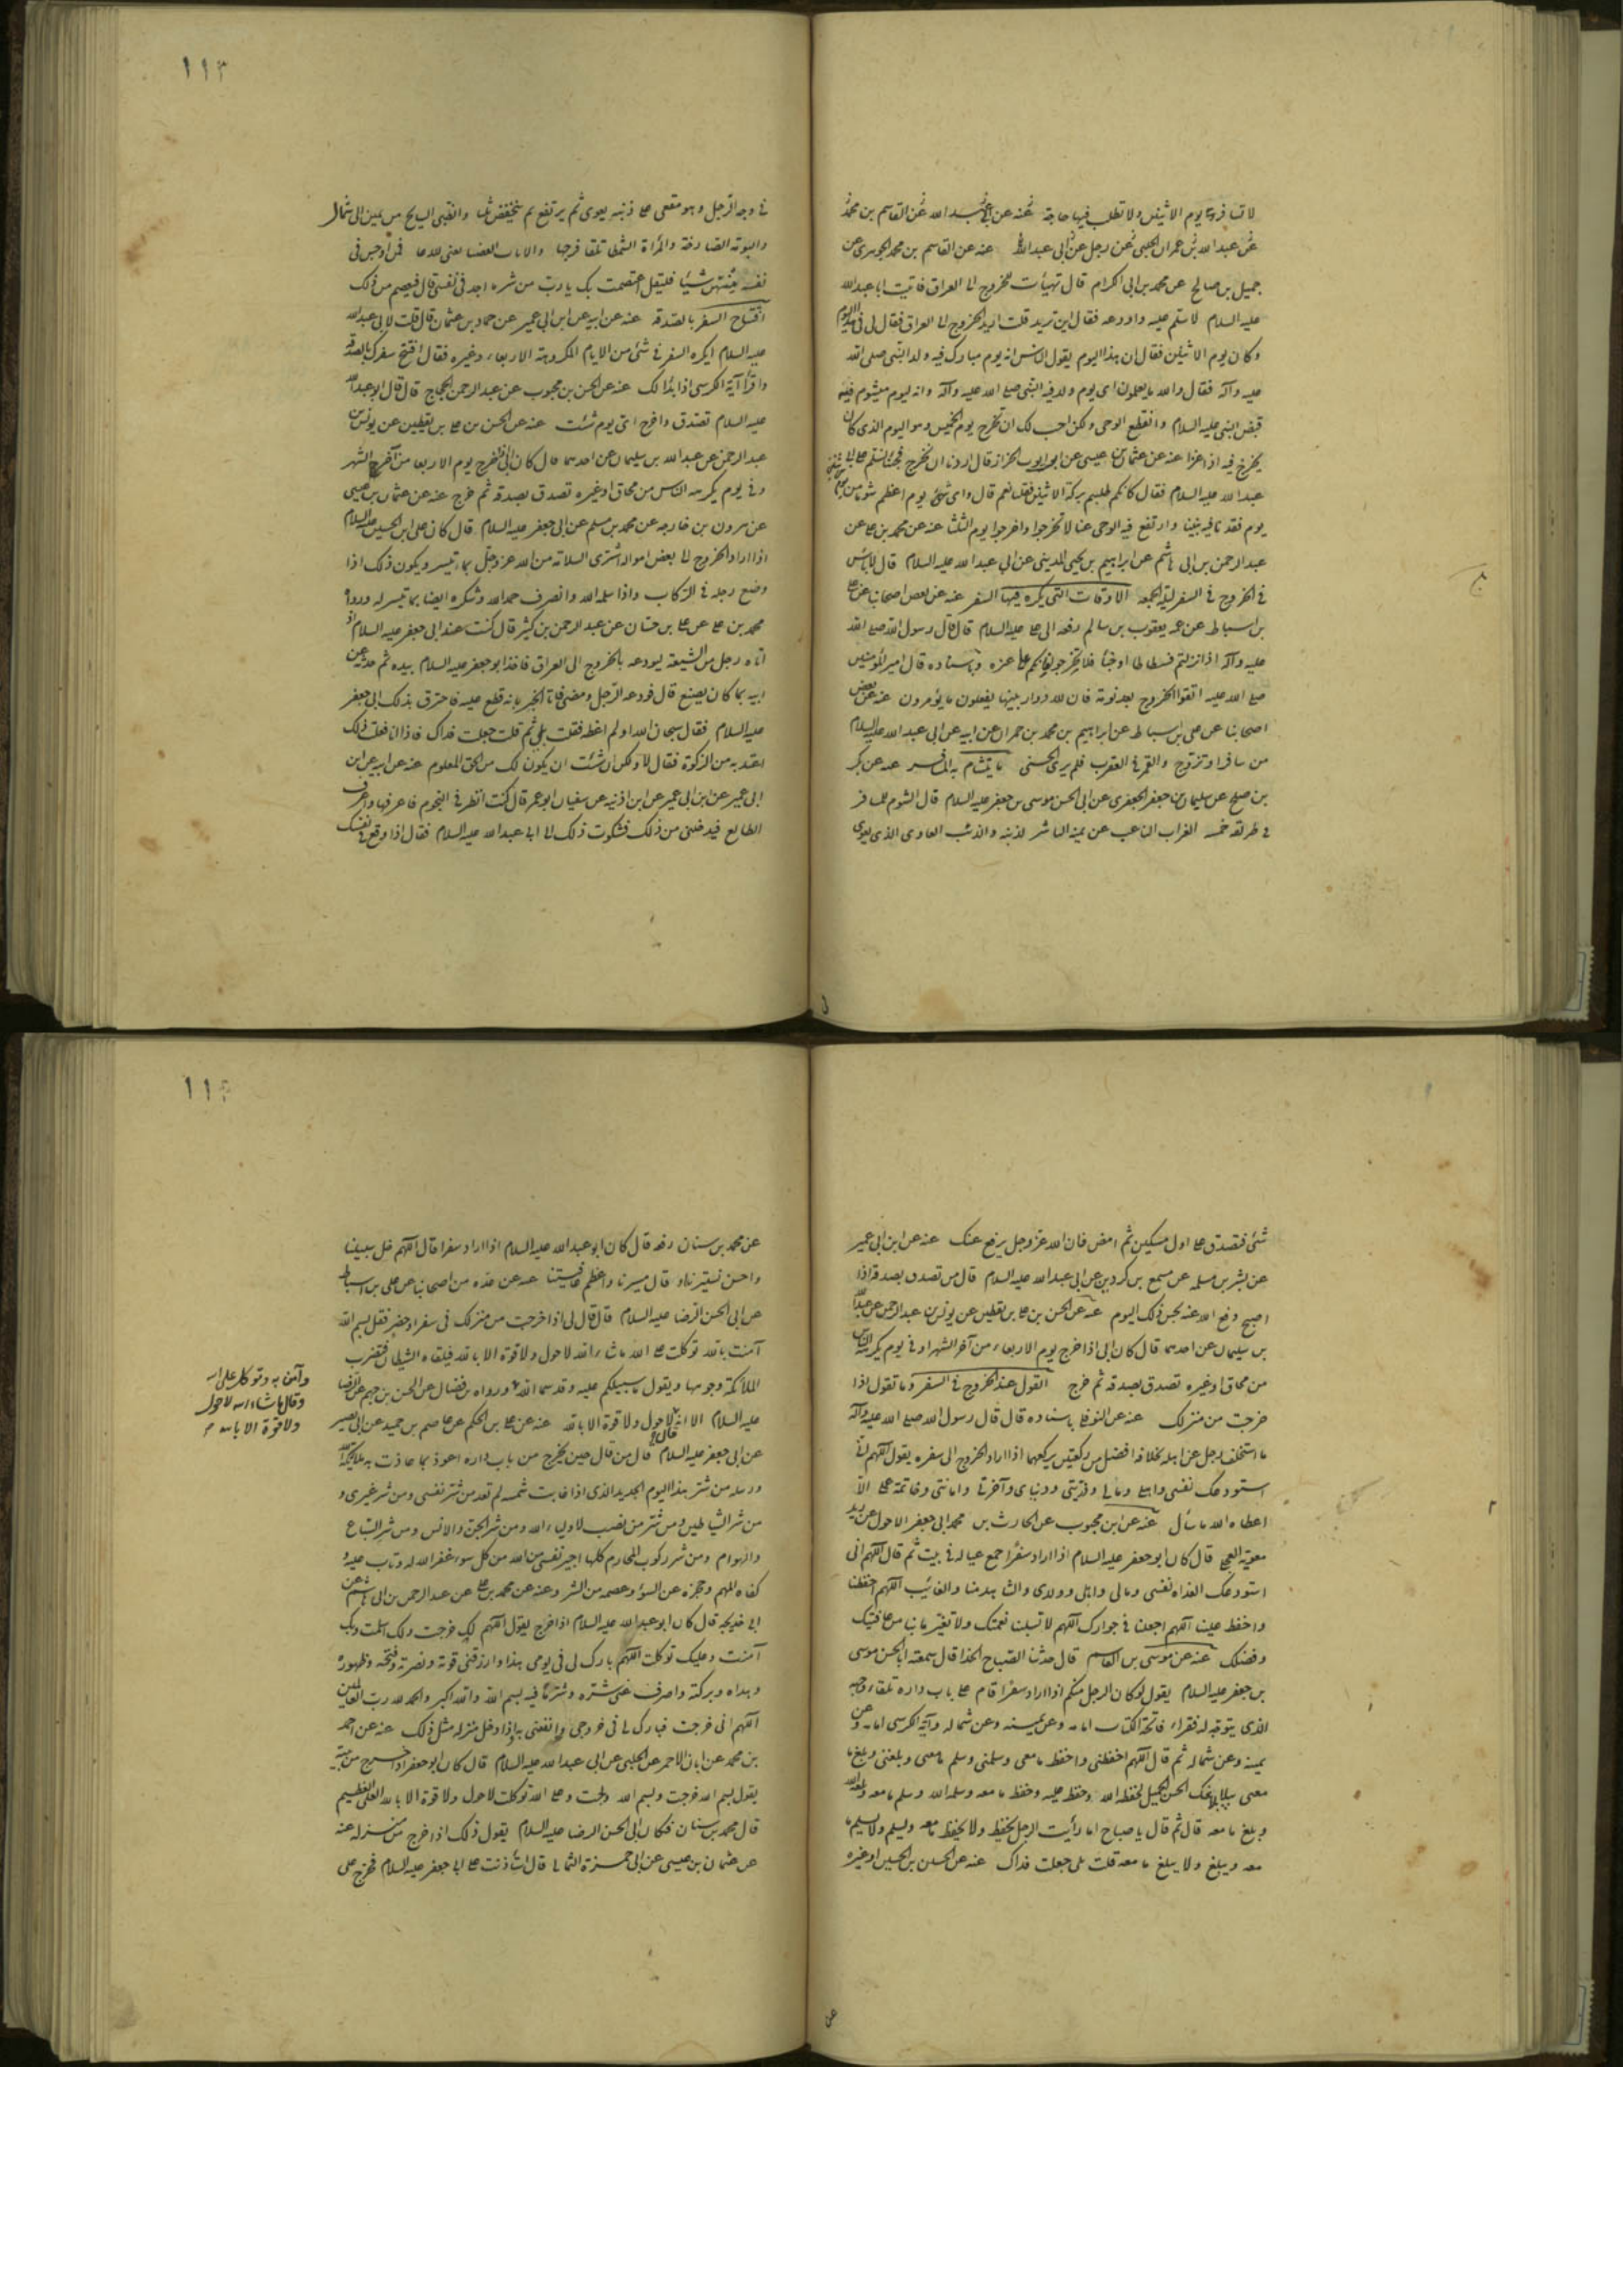 لا تسافر يوم الاثنين ولا تطلب فيها حاجة عنه عن ابي عبد الله عن القاسم بن محمد
عن عبد الله بن عمران الحلبي عن رجل عن ابي عبد الله عنه عن القاسم بن محمد الجوهري عن
جميل بن صالح عن محمد بن ابي الكرام قال تهيأت للخروج الى العراق فاتيت ابا عبد الله
عليه السلام لاسلم عليه واودعه فقال اين تريد قلت اريد الخروج الى العراق فقال لي في هذا اليوم
وكان يوم الاثنين فقال ان هذا اليوم يقول الناس انه يوم مبارك فيه ولد النبي صلى الله
عليه وآله فقال والله ما يعلمون اي يوم ولد فيه النبي صلى الله عليه وآله وانه ليوم ميشوم فيه
قبض النبي عليه السلام وانقطع الوحي ولكن احب لك ان تخرج يوم الخميس وهو اليوم الذي كان
يخرج فيه اذا غزا عنه عن عثمان بن عيسى عن ابي ايوب الخزاز قال اردنا ان نخرج فجئنا نسلم على ابي
عبد الله عليه السلام فقال كانكم طلبتم بركة الاثنين فقلنا نعم قال واي شئ يوم اعظم شوما من
يوم فقدنا فيه نبينا وارتفع فيه الوحي عنا لا تخرجوا واخرجوا يوم الثلثا عنه عن محمد بن علي عن
عبد الرحمن بن ابي هاشم عن ابراهيم بن يحيى المديني عن ابي عبد الله عليه السلام قال لا باس
في الخروج في السفر ليلة الجمعة الاوقات التي يكره فيها السفر عنه عن بعض اصحابنا عن علي
بن اسباط عن عمه يعقوب بن سالم رفعه الى علي عليه السلام قال قال رسول الله صلى الله
عليه وآله اذا نزلتم فسطاطا او خبأ فلا تخرجوا فانكم على غره وباسناده قال امير المؤمنين
صلى الله عليه اتقوا الخروج بعد نومة فان لله دوار بينها يفعلون ما يؤمرون عنه عن بعض
اصحابنا عن علي بن اسباط عن ابراهيم بن محمد بن حمران عن ابيه عن ابي عبد الله عليه السلام
من سافر او تزوج والقمر في العقرب فلم ير الحسنى ما يتشام به المسافر عنه عن بكر
بن صلح عن سليمان بن جعفر الجعفري عن ابي الحسن موسى بن جعفر عليه السلام قال الشوم للمسافر
في طريقه خمسه الغراب الناعب عن يمينه الناشر لذنبه والذئب العاوي الذي يعوي
١١٣
في وجه الرجل وهو مقعي على ذنبه يعوي ثم يرتفع ثم ينخفض ثلثا والظبي السايح من يمين الى شمال
والبومة الصارخة والمرأة الشمطا تلقا فرجها والاتان العضبا يعني الجدعا فمن اوجس في
نفسه منهن شيئا فليقل اعتصمت بك يا رب من شر ما اجد في نفسي قال فيعصم من ذلك
افتتاح السفر بالصدقة عنه عن ابيه عن ابن ابي عمير عن حماد بن عثمان قال قلت لابي عبد الله
عليه السلام ايكره السفر في شئ من الايام المكروهة الاربعاء وغيره فقال افتتح سفرك بالصدقة
واقرأ آية الكرسي اذا بدا لك عنه عن الحسن بن محبوب عن عبد الرحمن الحجاج قال قال ابو عبد الله
عليه السلام تصدق واخرج اي يوم شئت عنه عن الحسن بن علي بن يقطين عن يونس بن
عبد الرحمن عن عبد الله بن سليمان عن احدهما قال كان ابي اذا خرج يوم الاربعا من آخر الشهر
وفي يوم يكرهه الناس من محاق او غيره تصدق بصدقه ثم خرج عنه عن عثمان بن عيسى
عن هرون بن خارجه عن محمد بن مسلم عن ابي جعفر عليه السلام قال كان علي بن الحسين عليه السلام
اذا اراد الخروج الى بعض امواله اشترى السلامة من الله عز وجل بما تيسر ويكون ذلك اذا
وضع رجله في الركاب واذا سلمه الله وانصرف حمد الله وشكره ايضا بما تيسر له ورواه
محمد بن علي عن علي بن حسان عن عبد الرحمن بن كثير قال كنت عند ابي جعفر عليه السلام اذ
اتاه رجل من الشيعة ليودعه بالخروج الى العراق فاخذ ابو جعفر عليه السلام بيده ثم حدثه عن
ابيه بما كان يصنع قال فودعه الرجل ومضى فاتاه الخبر بانه قطع عليه فاخبرت بذلك ابي جعفر
عليه السلام فقال سبحان الله اولم اعظه فقلت بلى ثم قلت جعلت فداك فاذا انا فعلت ذلك
اعتد به من الزكوة فقال لا ولكن ان شئت ان يكون لك من الحق المعلوم عنه عن ابيه عن ابن
ابي عمير عن ابن ابي عمير عن ابن اذنيه عن سفيان ابو عمر قال كنت انظر في النجوم فاعرفها واعرف
الطالع فيدخلني من ذلك فشكوت ذلك الى ابي عبد الله عليه السلام فقال اذا وقع في نفسك
شئ فتصدق على اول مسكين ثم امض فان الله عز وجل يرفع عنك عنه عن ابن ابي عمير
عن بشر بن سلمه عن مسمع بن كردين عن ابي عبد الله عليه السلام قال من تصدق بصدقه اذا
اصبح دفع الله عنه نحس ذلك اليوم عنه عن الحسن بن علي بن يقطين عن يونس بن عبد الرحمن عن عبد الله
بن سليمان عن احدهما قال كان ابي اذا خرج يوم الاربعاء من آخر الشهر او في يوم يكرهه الناس
من محاق او غيره تصدق بصدقه ثم خرج القول عند الخروج في السفر وما تقول اذا
خرجت من منزلك عنه عن النوفلي باسناده قال قال رسول الله صلى الله عليه وآله
ما استخلف رجل على اهله بخلافة افضل من ركعتين يركعهما اذا اراد الخروج الى سفره يقول اللهم اني
استودعك نفسي واهلي ومالي وذريتي ودنياي وآخرتي وامانتي وخاتمة عملي الا
اعطاه الله ما سأل عنه عن ابن محبوب عن الحارث بن محمد ابي جعفر الاحول عن بريد
معوية العجلي قال كان ابو جعفر عليه السلام اذا اراد سفرا جمع عياله في بيت ثم قال اللهم اني
استودعك الغداه نفسي ومالي واهلي وولدي والشاهد منا والغائب اللهم احفظنا
واحفظ علينا اللهم اجعلنا في جوارك اللهم لا تسلبنا نعمتك ولا تغير ما بنا من عافيتك
وفضلك عنه عن موسى بن القاسم قال حدثنا الصباح الحذا قال سمعت ابا الحسن موسى
بن جعفر عليه السلام يقول لو كان الرجل منكم اذا اراد سفرا قام على باب داره تلقاء وجهه
الذي يتوجه له فقراء فاتحة الكتاب امامه وعن يمينه وعن شماله وآية الكرسي امامه وعن
يمينه وعن شماله ثم قال اللهم احفظني واحفظ ما معي وسلمني وسلم ما معي وبلغني وبلغ ما
معي ببلاغك الحسن الجميل لحفظه الله وحفظ عليه وحفظ ما معه وسلمه الله وسلم ما معه وبلغه الله
وبلغ ما معه قال ثم قال يا صباح اما رأيت الرجل يحفظ ولا يحفظ ما معه ويسلم ولا يسلم ما
معه ويبلغ ولا يبلغ ما معه قلت بلى جعلت فداك عنه عن الحسن بن الحسين او غيره
عن
عن محمد بن سنان رفعه قال كان ابو عبد الله عليه السلام اذا اراد سفرا قال اللهم خل سبيلنا
واحسن تسييرنا او قال مسيرنا واعظم عافيتنا عنه عن عده من اصحابنا عن علي بن اسباط
عن ابي الحسن الرضا عليه السلام قال قال لي اذا خرجت من منزلك في سفر او حضر فقل بسم الله
آمنت بالله توكلت على الله ما شاء الله لا حول ولا قوة الا بالله فتلقاه الشياطين فتضرب
الملائكة وجوهها ويقول ما سبيلكم عليه وقد سما الله ورواه بن فضال عن الحسن بن جهم عن الرضا
وآمن به وتوكل على الله
وقال ما شاء الله لا حول
ولا قوة الا بالله
عليه السلام الا انه قال لا حول ولا قوة الا بالله عنه عن علي بن الحكم عن عاصم بن حميد عن ابي بصير
عن ابي جعفر عليه السلام قال من قال حين يخرج من باب داره اعوذ بما عاذت به ملائكة الله
ورسله من شر هذا اليوم الجديد الذي اذا غابت شمسه لم تعد من شر نفسي ومن شر غيري و
من شر الشياطين ومن شر من نصب لاولياء الله ومن شر الجن والانس ومن شر السباع
والهوام ومن شر ركوب المحارم كلها اجير نفسي من الله من كل سوء غفر الله له وتاب عليه و
كفاه المهم وحجزه عن السوء وعصمه من الشر وعنه عن محمد بن علي عن عبد الرحمن بن ابي هاشم عن
ابي خديجه قال كان ابو عبد الله عليه السلام اذا خرج يقول اللهم لك خرجت ولك اسلمت وبك
آمنت وعليك توكلت اللهم بارك لي في يومي هذا وارزقني قوته ونصرته وفتحه وظهوره
وهداه وبركته واصرف عني شره وشر ما فيه بسم الله والله اكبر والحمد لله رب العالمين
اللهم اني خرجت فبارك لي في خروجي وانفعني به واذا دخل منزله مثل ذلك عنه عن احمد
بن محمد عن ابان الاحمر عن الحلبي عن ابي عبد الله عليه السلام قال كان ابو جعفر اذا خرج من بيته
يقول بسم الله خرجت وبسم الله ولجت وعلى الله توكلت لا حول ولا قوة الا بالله العلي العظيم
قال محمد بن سنان فكان ابي الحسن الرضا عليه السلام يقول ذلك اذا خرج من منزله عنه
عن عثمان بن عيسى عن ابي حمزة الثمالي قال استأذنت على ابي جعفر عليه السلام فخرج علي